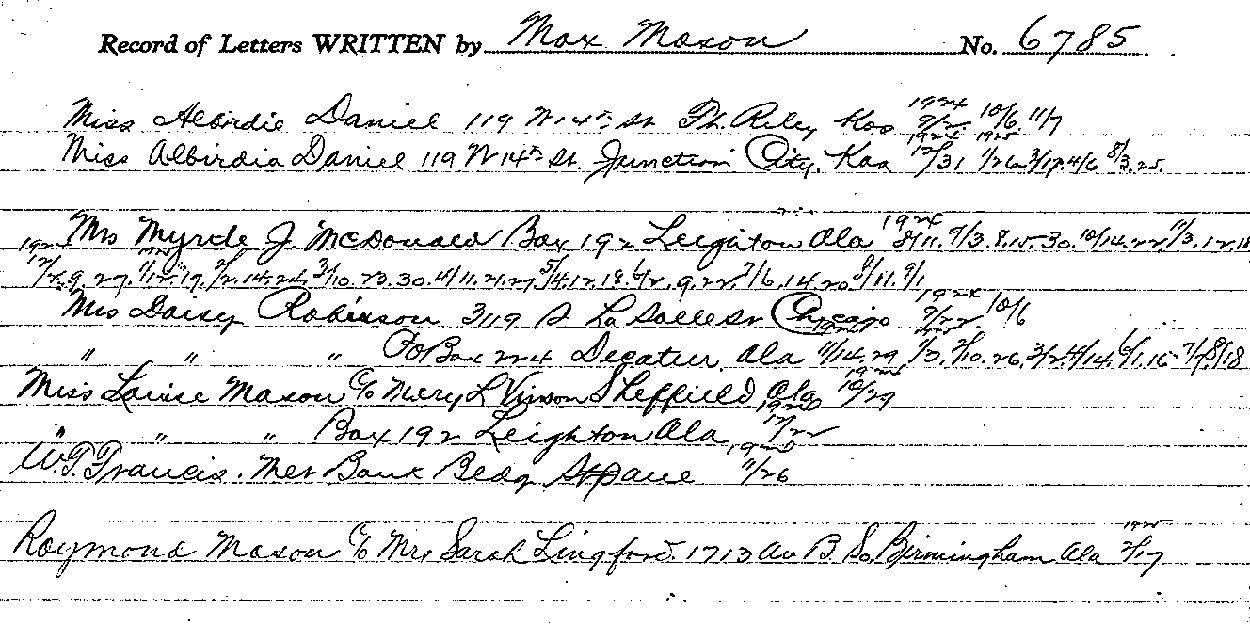 Record of Letters WRITTEN by Max Mason No. 6785
Miss Albirdie Daniel 119 W 14th St Ft. Riley Kas 1924 9/22 10/6 11/7
Miss Albirdia Daniel 119 W 14th St. Junction City. Kas 1924 12/31 1925 1/26 3/17 4/6 8/3.25.
Mrs Myrtle J. McDonald Box 192 Leighton Ala 1924 8/11. 9/3. 8.15.30. 10/14.22. 11/3.12.18
1924 12/2.9.27. 3/10.23.30. 4/11.21.27. 5/4.12.18. 6/2.9.22. 7/6.14.20. 8/11. 9/1
Mrs Daisy Robinson 3119 S La Salle St Chicago 1924 9/22 10/6
" " " PO Box 224 Decatur, Ala 11/14.29 1/3. 2/10.26. 4/14. 6/1.16. 8/18
Miss Louise Mason C/o Mery L Vinson Sheffield, Ala 1924 10/29
" " " Box 192 Leighton Ala, 12/22
W.T. Francis. Met Bank Bldg St Paul 11/26
Raymond Mason C/o Mrs Sarah Lingford. 1713 Av B. So. Birmingham Ala 1925 2/17